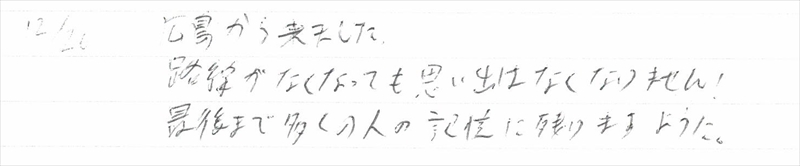 12/26 広島から来ました.
路線がなくなっても思い出はなくなりません!
最後まで多くの人の記憶に残りますように。